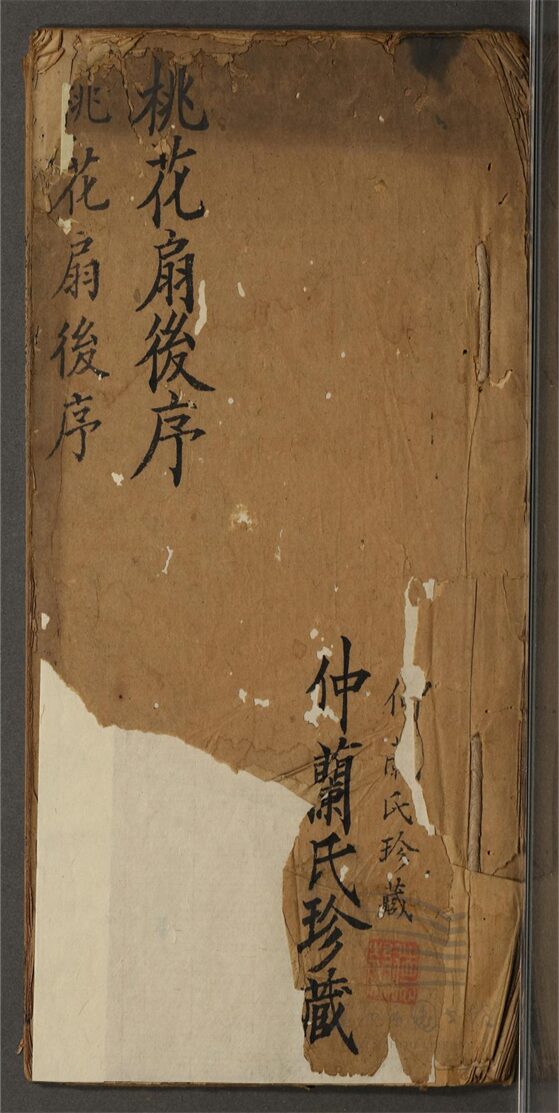 仲蘭氏珍藏
仲蘭氏珍藏
桃花扇後序
桃花扇後序